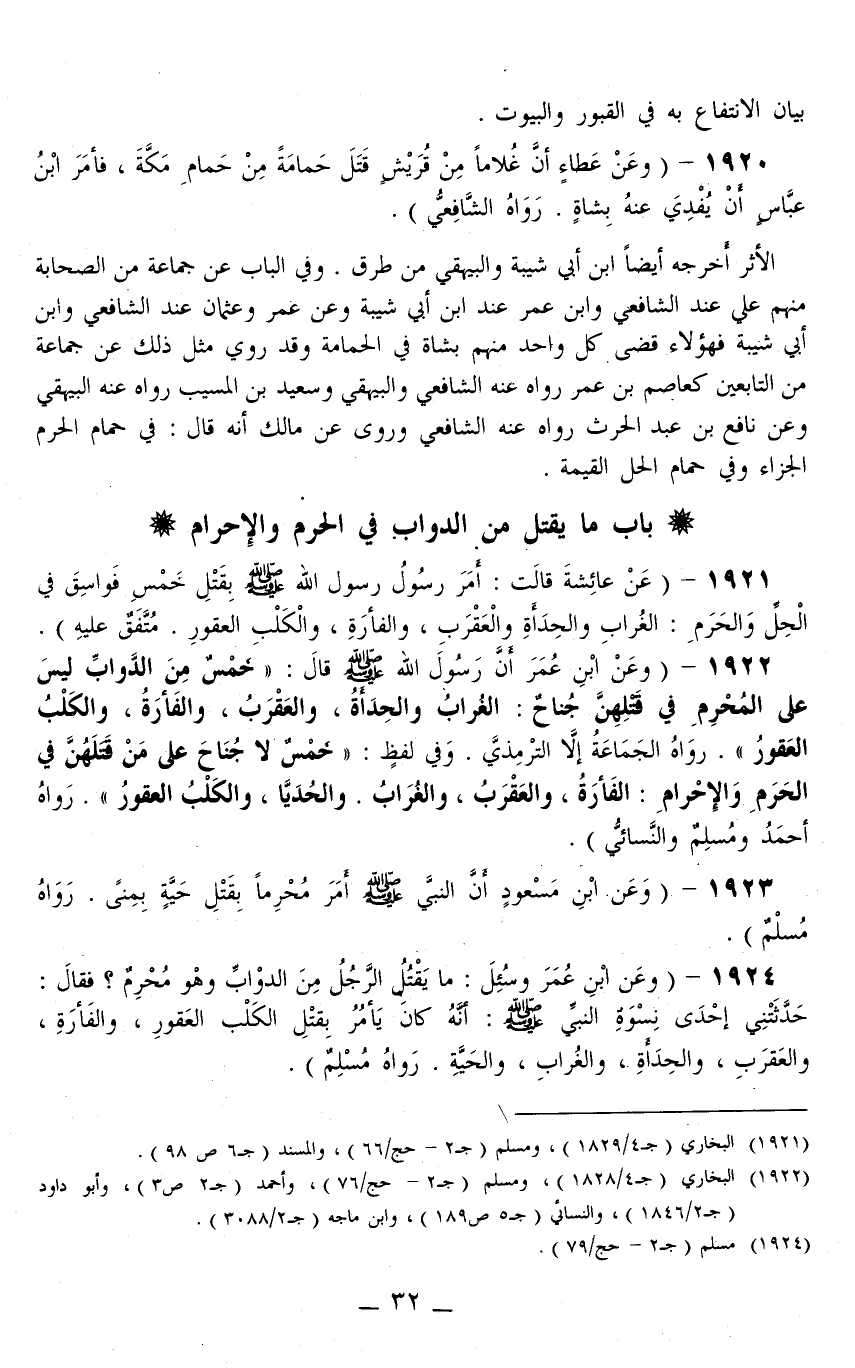 بيان الانتفاع به في القبور والبيوت .
١٩٢٠ – ( وعَنْ عَطاءٍ أنَّ غُلاماً مِنْ قُرَيْشٍ قَتَلَ حَمامَةً مِنْ حَمامِ مَكَّةَ ، فأمَرَ ابْنُ
عبَّاسٍ أَنْ يُفْدِيَ عنهُ بِشاةٍ . رَوَاهُ الشَّافِعيُّ ) .
الأثر أخرجه أيضاً ابن أبي شيبة والبيهقي من طرق . وفي الباب عن جماعة من الصحابة
منهم علي عند الشافعي وابن عمر عند ابن أبي شيبة وعن عمر وعثمان عند الشافعي وابن
أبي شيبة فهؤلاء قضى كل واحد منهم بشاة في الحمامة وقد روي مثل ذلك عن جماعة
من التابعين كعاصم بن عمر رواه عنه الشافعي والبيهقي وسعيد بن المسيب رواه عنه البيهقي
وعن نافع بن عبد الحرث رواه عنه الشافعي وروى عن مالك أنه قال : في حمام الحرم
الجزاء وفي حمام الحل القيمة .
❋ باب ما يقتل من الدواب في الحرم والإحرام ❋
١٩٢١ – ( عَنْ عائِشةَ قالَت : أَمَرَ رسُولُ رسول الله ﷺ بِقَتْلِ خَمْسِ فَواسِقَ في
الْحِلِّ وَالحَرَمِ : الغُراب والحِدَأَةِ والْعَقْرَب ، والفأرَةِ ، والْكَلْبِ العقورِ . مُتَّفَقٌ عليهِ ) .
١٩٢٢ – ( وعَنْ ابْنِ عُمَرَ أَنَّ رَسُولَ الله ﷺ قالَ : « خَمْسٌ مِنَ الدَّوابِّ ليسَ
على المُحْرِمِ في قَتْلِهِنَّ جُناحٌ : الغُرابُ والحِدَأَةُ ، والعَقْرَبُ ، والفَأرَةُ ، والكَلْبُ
العَقورُ » . رواهُ الجَمَاعَةُ إلَّا التِّرْمِذيَّ . وَفي لفظٍ : « خَمْسٌ لا جُناحَ على مَنْ قَتَلَهُنَّ في
الحَرَمِ وَالإِحْرامِ : الفَأرَةُ ، والعَقْرَبُ ، والغُرَابُ . والحُدَيَّا ، والكَلْبُ العقورُ » . رَواهُ
أحمَدُ ومُسلِمٌ والنَّسائيُّ ) .
١٩٢٣ – ( وَعَن ابْنِ مَسْعودٍ أَنَّ النبيَّ ﷺ أَمَرَ مُحْرِماً بِقَتْلِ حَيَّةٍ بِمِنىً . رَوَاهُ
مُسلْمٌ ) .
١٩٢٤ – ( وعَن ابْنِ عُمَرَ وسُئِلَ : ما يَقْتُلُ الرَّجُلُ مِنَ الدوْابِّ وهْو مُحْرِمٌ ؟ فقالَ :
حَدَّثَتْنِي إحْدَى نِسْوَةِ النبيِّ ﷺ : أَنَّهُ كانَ يَأمُرُ بِقتْلِ الكَلْب العَقورِ ، والفَأرَةِ ،
والعَقرَبِ ، والحِدَأَةِ ، والغُرابِ ، والحَيَّةِ . رَواهُ مُسْلِمٌ ) .
(١٩٢١) البخاري ( جـ١٨٢٩/٤ ) ، ومسلم ( جـ٢ – حج/٦٦ ) ، والمسند ( جـ٦ ص ٩٨ ) .
(١٩٢٢) البخاري ( جـ١٨٢٨/٤ ) ، ومسلم ( جـ٢ – حج/٧٦ ) ، وأحمد ( جـ٢ ص٣ ) ، وأبو داود
( جـ١٨٤٦/٢ ) ، والنسائي ( جـ٥ ص١٨٩ ) ، وابن ماجه ( جـ٣٠٨٨/٢ ) .
(١٩٢٤) مسلم ( جـ٢ – حج/٧٩ ) .
– ٣٢ –